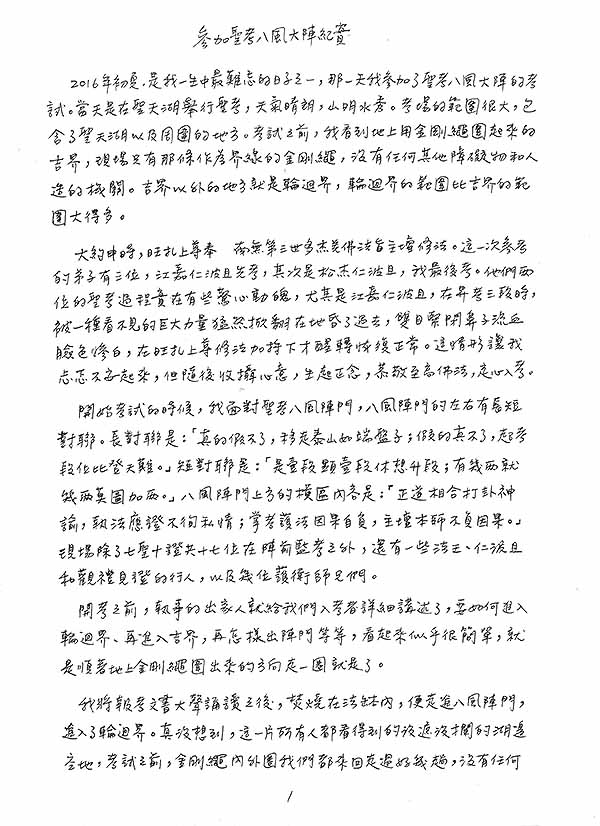 參加聖考八風大陣紀實
2016年初夏,是我一生中最難忘的日子之一,那一天我參加了聖考八風大陣的考
試。當天是在聖天湖舉行聖考,天氣晴朗,山明水秀。考場的範圍很大,包
含了聖天湖以及周圍的地方。考試之前,我看到地上用金剛繩圈起來的
吉界,現場只有那條作為界線的金剛繩,沒有任何其他障礙物和人
造的機關。吉界以外的地方就是輪迴界,輪迴界的範圍比吉界的範
圍大得多。
大約申時,旺扎上尊奉 南無第三世多杰羌佛法旨主壇修法。這一次參考
的弟子有三位,江嘉仁波且先考,其次是松杰仁波且,我最後考。他們兩
位的聖考過程實在有些驚心動魄,尤其是江嘉仁波且,在昇考三段時,
被一種看不見的巨大力量猛然掀翻在地昏了過去,雙目緊閉鼻子流血
臉色慘白,在旺扎上尊修法加持下才醒轉恢復正常。這情形讓我
忐忑不安起來,但隨後收攝心意,生起正念,恭敬至高佛法,定心入考。
開始考試的時候,我面對聖考八風陣門,八風陣門的左右有長短
對聯。長對聯是:「真的假不了,移走泰山如端盤子;假的真不了,起考
段位比登天難。」短對聯是:「是壹段顆壹段休想升段;有幾兩就
幾兩莫圖加兩。」八風陣門上方的橫匾內容是:「正道相合打卦神
諭,執法應證不徇私情;掌考護法因果自負,主壇本師不負因果。」
現場除了七聖十證共十七位在陣前監考之外,還有一些法王、仁波且
和觀禮見證的行人,以及幾位護衛師兄們。
開考之前,執事的出家人就給我們入考者詳細講述了,要如何進入
輪迴界、再進入吉界,再怎樣出陣門等等,看起來似乎很簡單,就
是順著地上金剛繩圈出來的方向走一圈就是了。
我將報考文書大聲誦讀之後,焚燒在法缽內,便走進八風陣門,
進入了輪迴界。真沒想到,這一片所有人都看得到的沒遮沒攔的湖邊
空地,考試之前,金剛繩內外圈我們都來回走過好幾趟,沒有任何
1